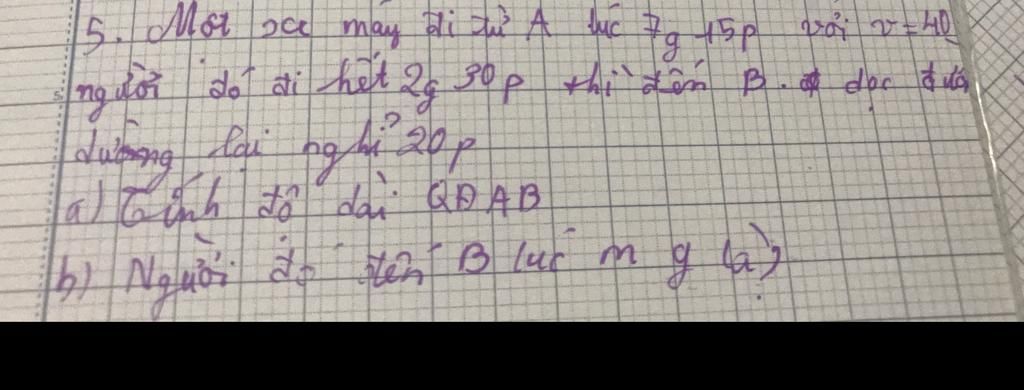 5. Một xe máy đi từ A lúc 7g 15p với v = 40
người đó đi hết 2g 30p thì đến B. dọc
đường lại nghỉ 20p
a) Tính độ dài QĐ AB
b) Người đó đến B lúc m g (a)?